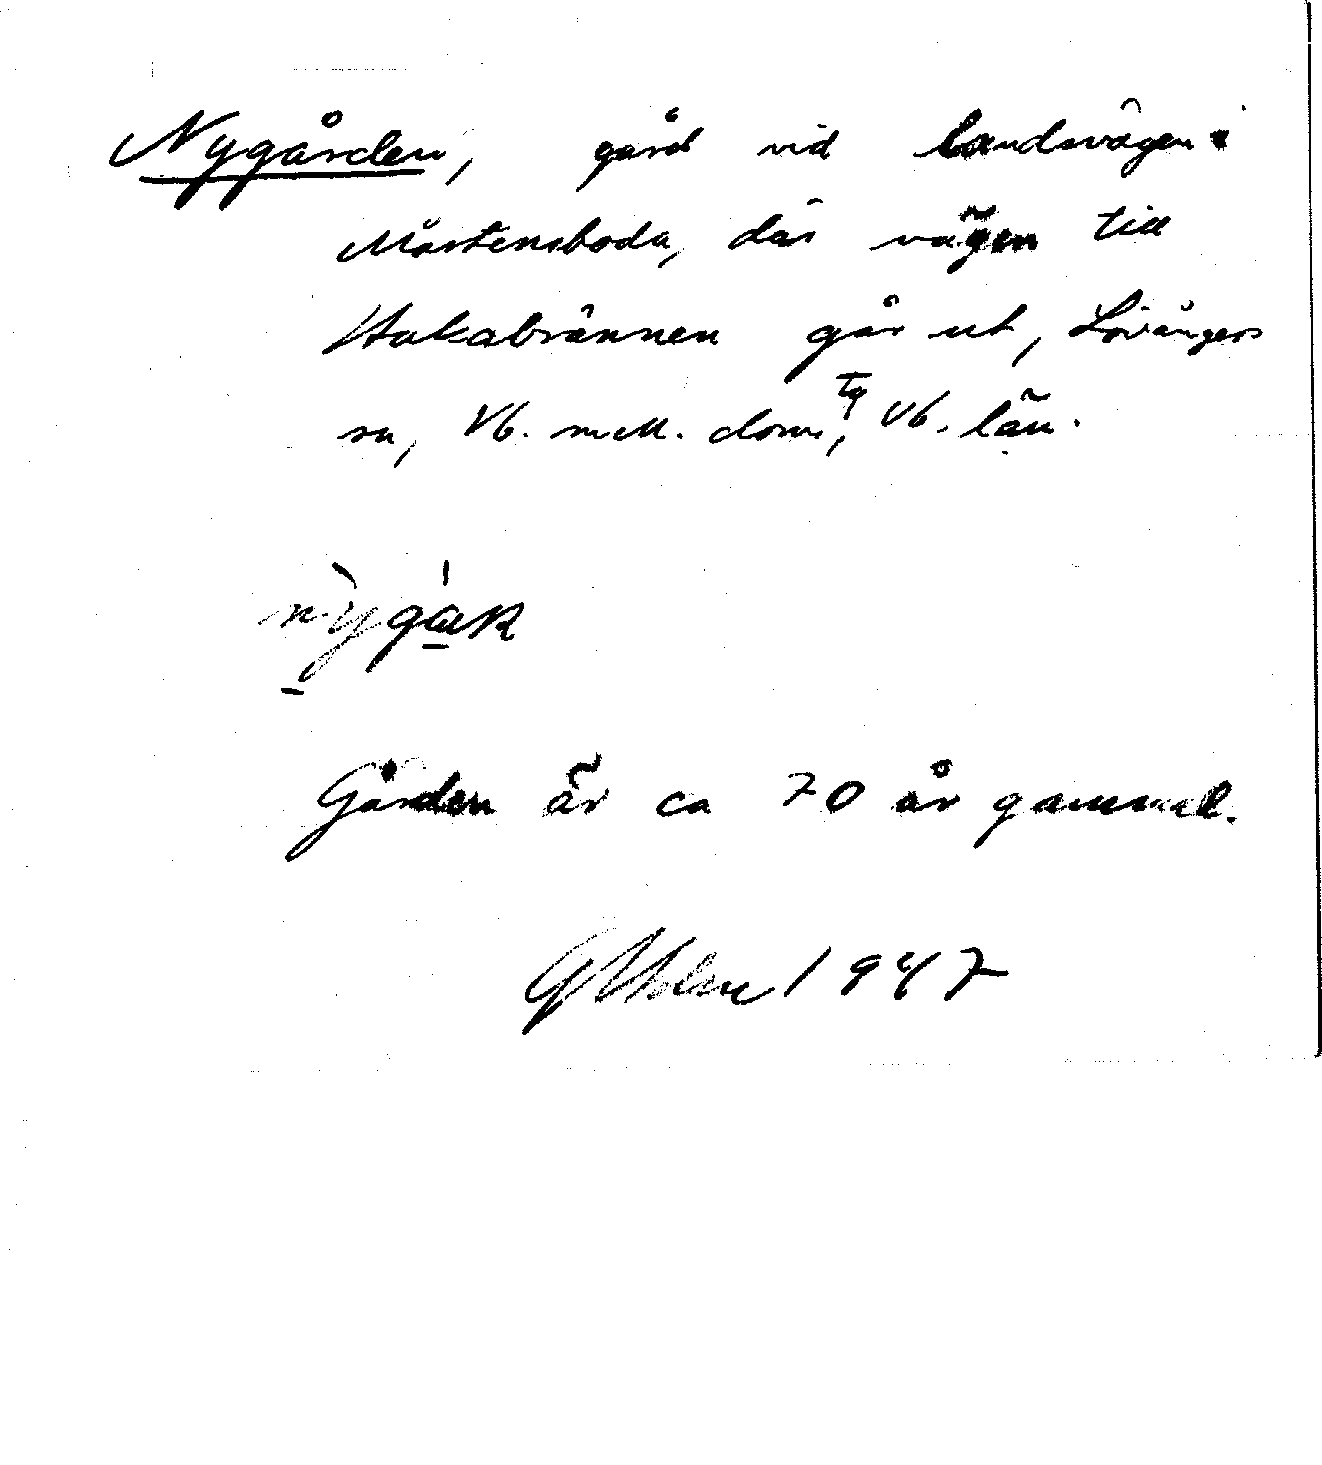 Nygården, gård vid landsvägen i
Mårtensboda, där vägen till
Hakabrännen går ut, Lövångers
sn, Vb. mell. doms tg, Vb. län.
Gården är ca 70 år gammal.
G Holm 1947